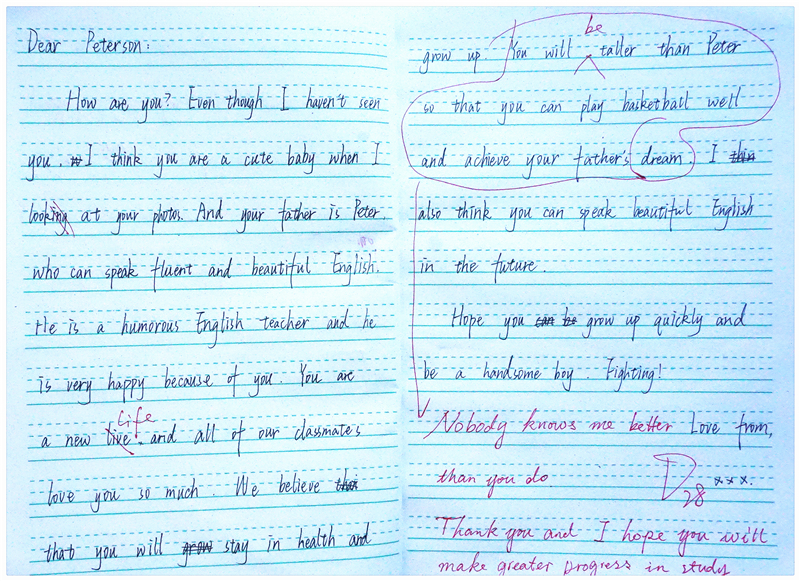 Dear Peterson:
How are you? Even though I haven't seen
you. I think you are a cute baby when I
looking at your photos. And your father is Peter.
who can speak fluent and beautiful English.
He is a humorous English teacher and he
is very happy because of you. You are
life
a new live. and all of our classmates
love you so much. We believe
that you will grow stay in health and
be
grow up. You will taller than Peter
so that you can play basketball well
and achieve your father's dream. I thin
also think you can speak beautiful English
in the future.
Hope you can be grow up quickly and
be a handsome boy. Fighting!
Nobody knows me better Love from,
than you do. D28 ***.
Thank you and I hope you will
make greater progress in study